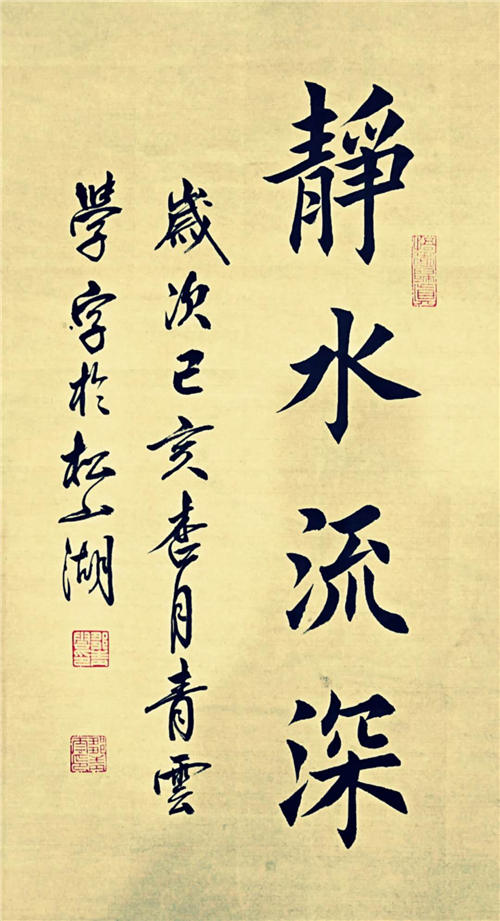 靜水流深
歲次己亥月青雲
學字於松山湖